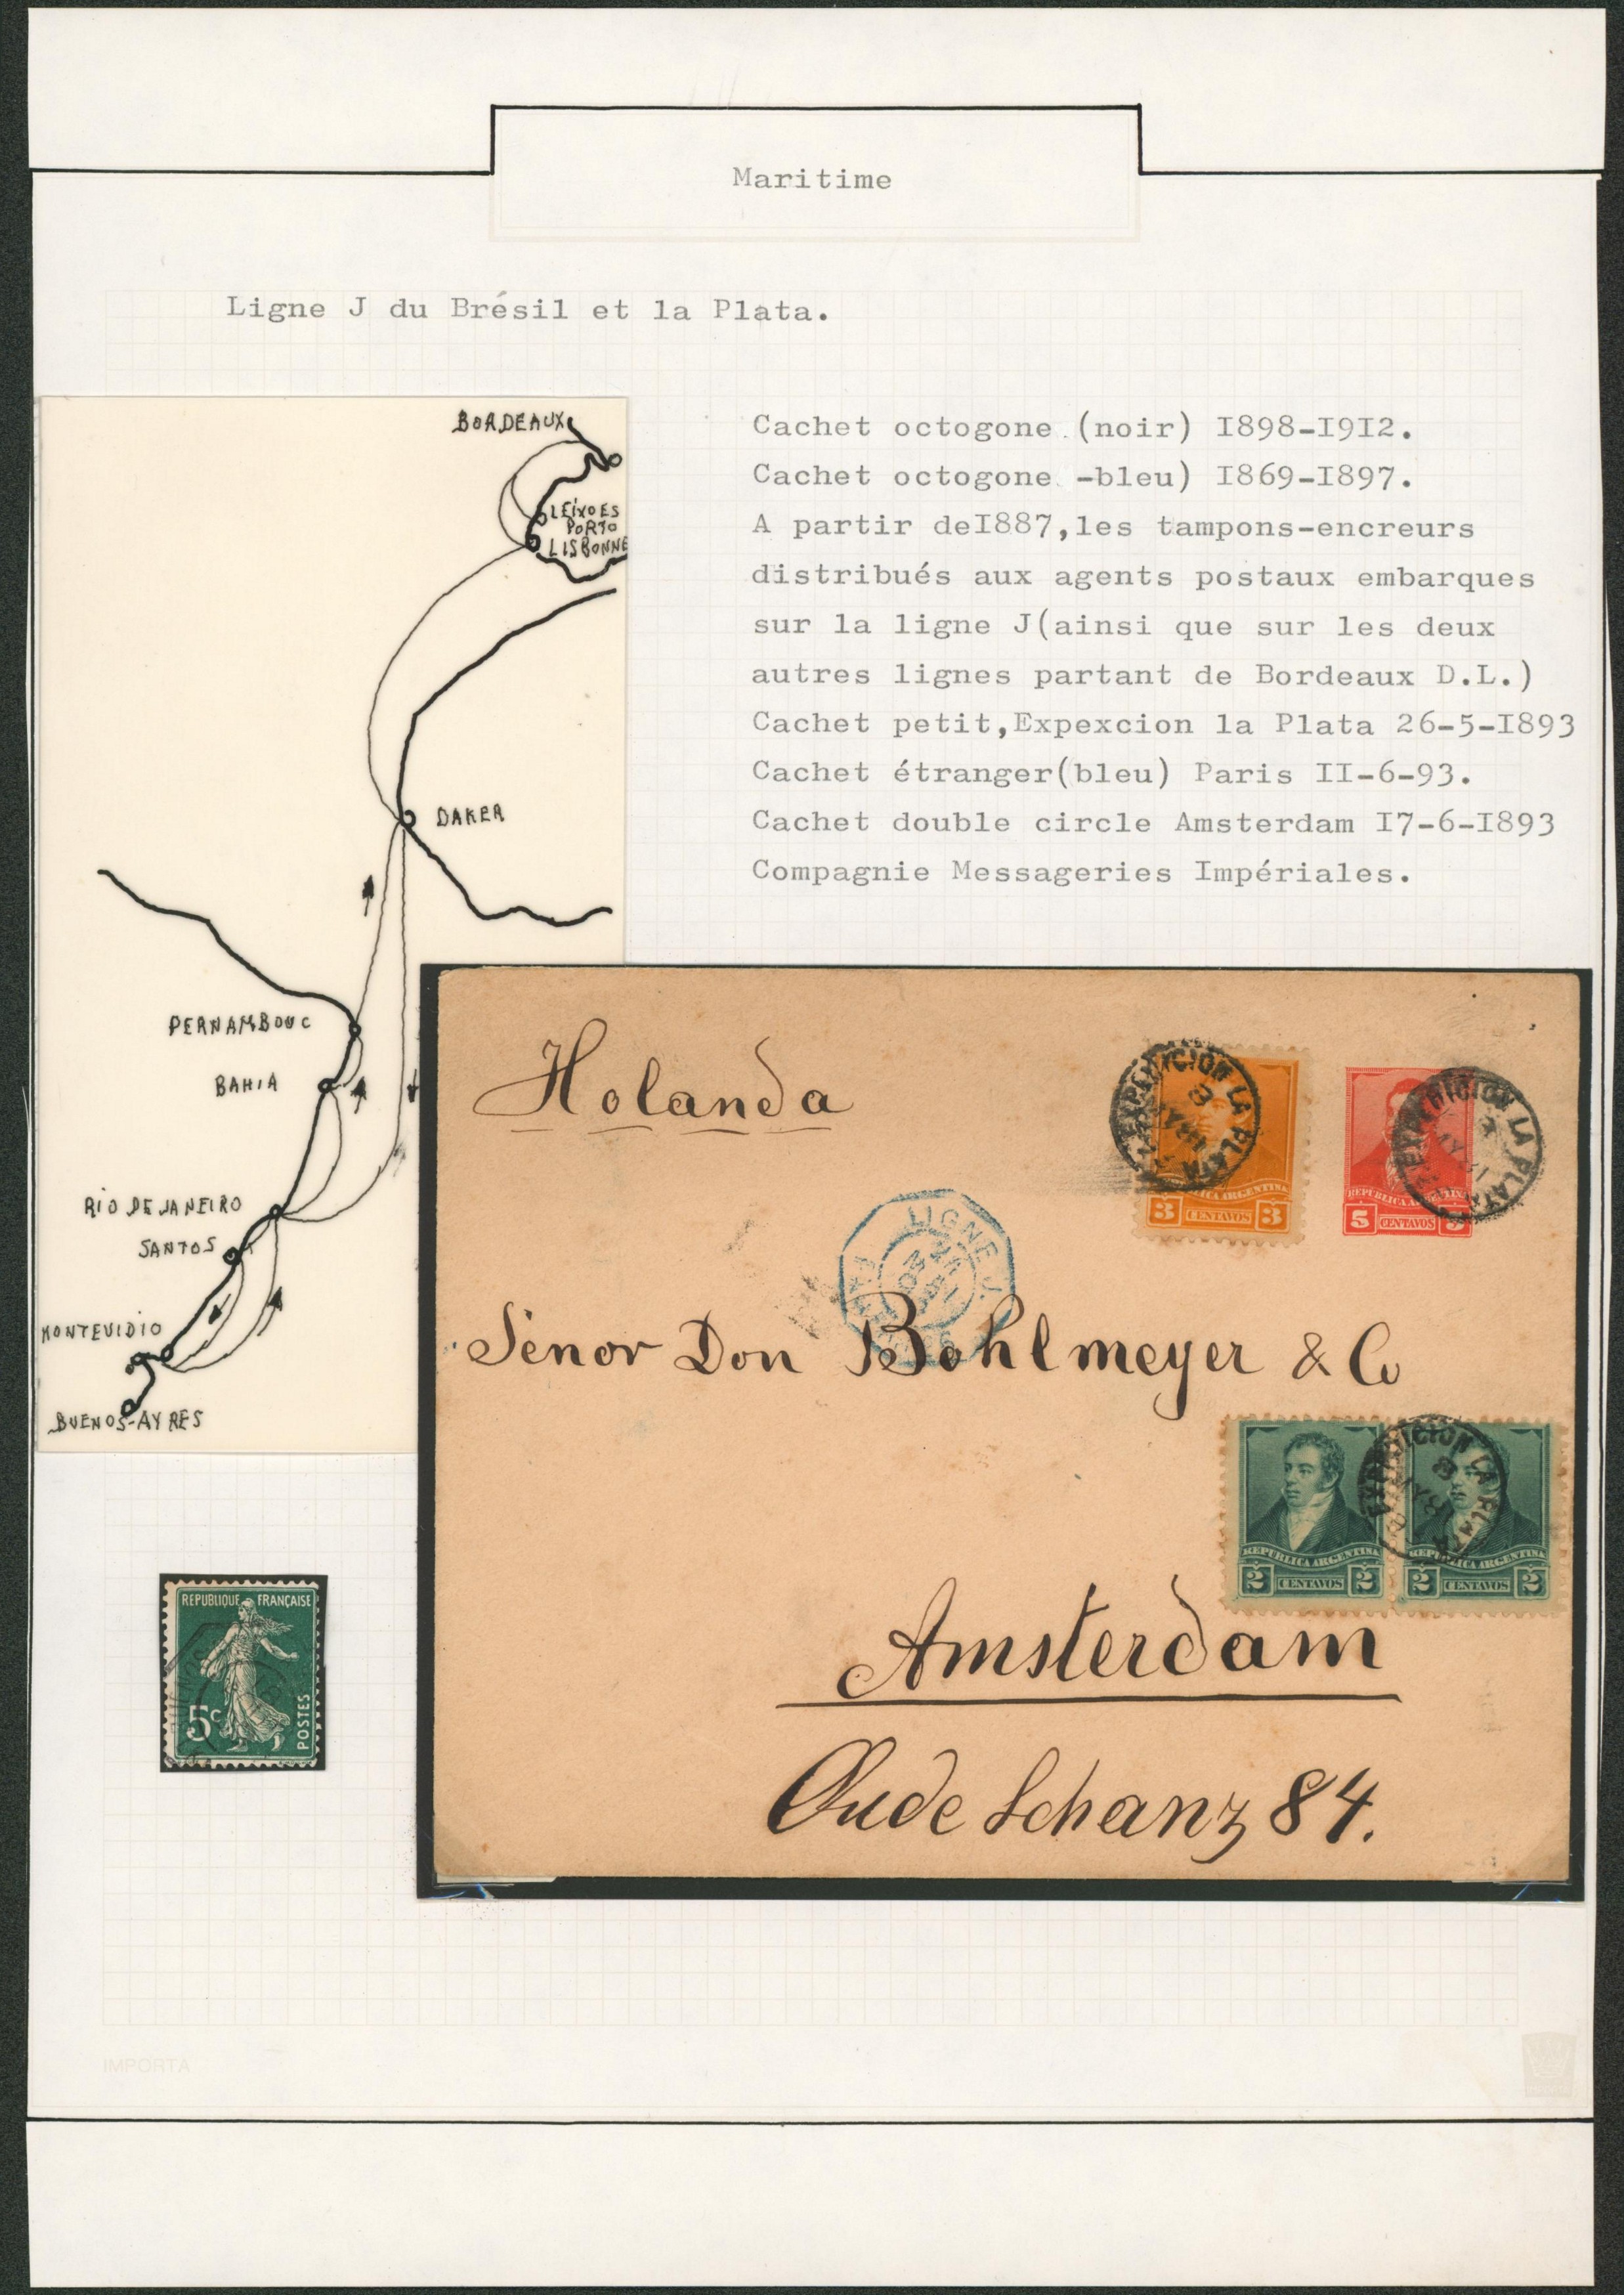 Maritime
Ligne J du Brésil et la Plata.
Cachet octogone (noir) I898-I9I2.
Cachet octogone -bleu) I869-I897.
A partir deI887,les tampons-encreurs
distribués aux agents postaux embarques
sur la ligne J(ainsi que sur les deux
autres lignes partant de Bordeaux D.L.)
Cachet petit,Expexcion la Plata 26-5-I893
Cachet étranger(bleu) Paris II-6-93.
Cachet double circle Amsterdam I7-6-I893
Compagnie Messageries Impériales.
BORDEAUX
LEIXOES
PORTO
LISBONNE
DAKER
PERNAMBOUC
BAHIA
RIO DE JANEIRO
SANTOS
MONTEVIDIO
BUENOS-AYRES
Holanda
EXPEDICION LA PLATA
3 CENTAVOS 3
EXPEDICION LA PLATA
REPUBLICA ARGENTINA
5 CENTAVOS 5
LIGNE J
Senor Don Bohlmeyer & Co
EXPEDICION LA PLATA
REPUBLICA ARGENTINA
2 CENTAVOS 2
REPUBLICA ARGENTINA
2 CENTAVOS 2
Amsterdam
Oude Schanz 84.
REPUBLIQUE FRANÇAISE
5c
POSTES
IMPORTA